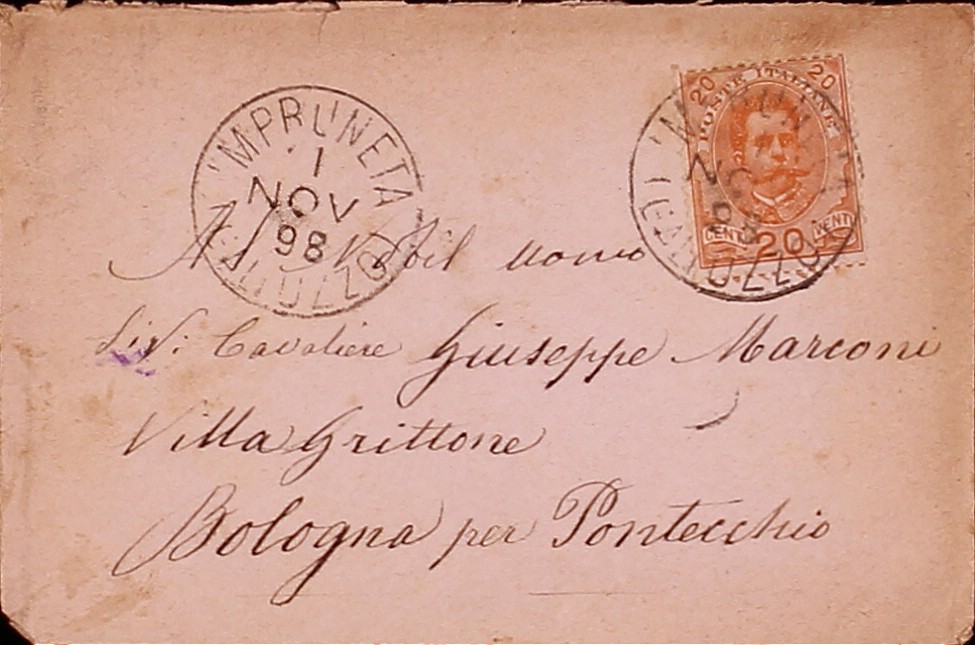 IMPRUNETA
1
NOV
98
GALLUZZO
20 POSTE ITALIANE 20
CENT. 20 CENT.
Al Nobil uomo
Sig: Cavaliere Giuseppe Marconi
Villa Grittone
Bologna per Pontecchio